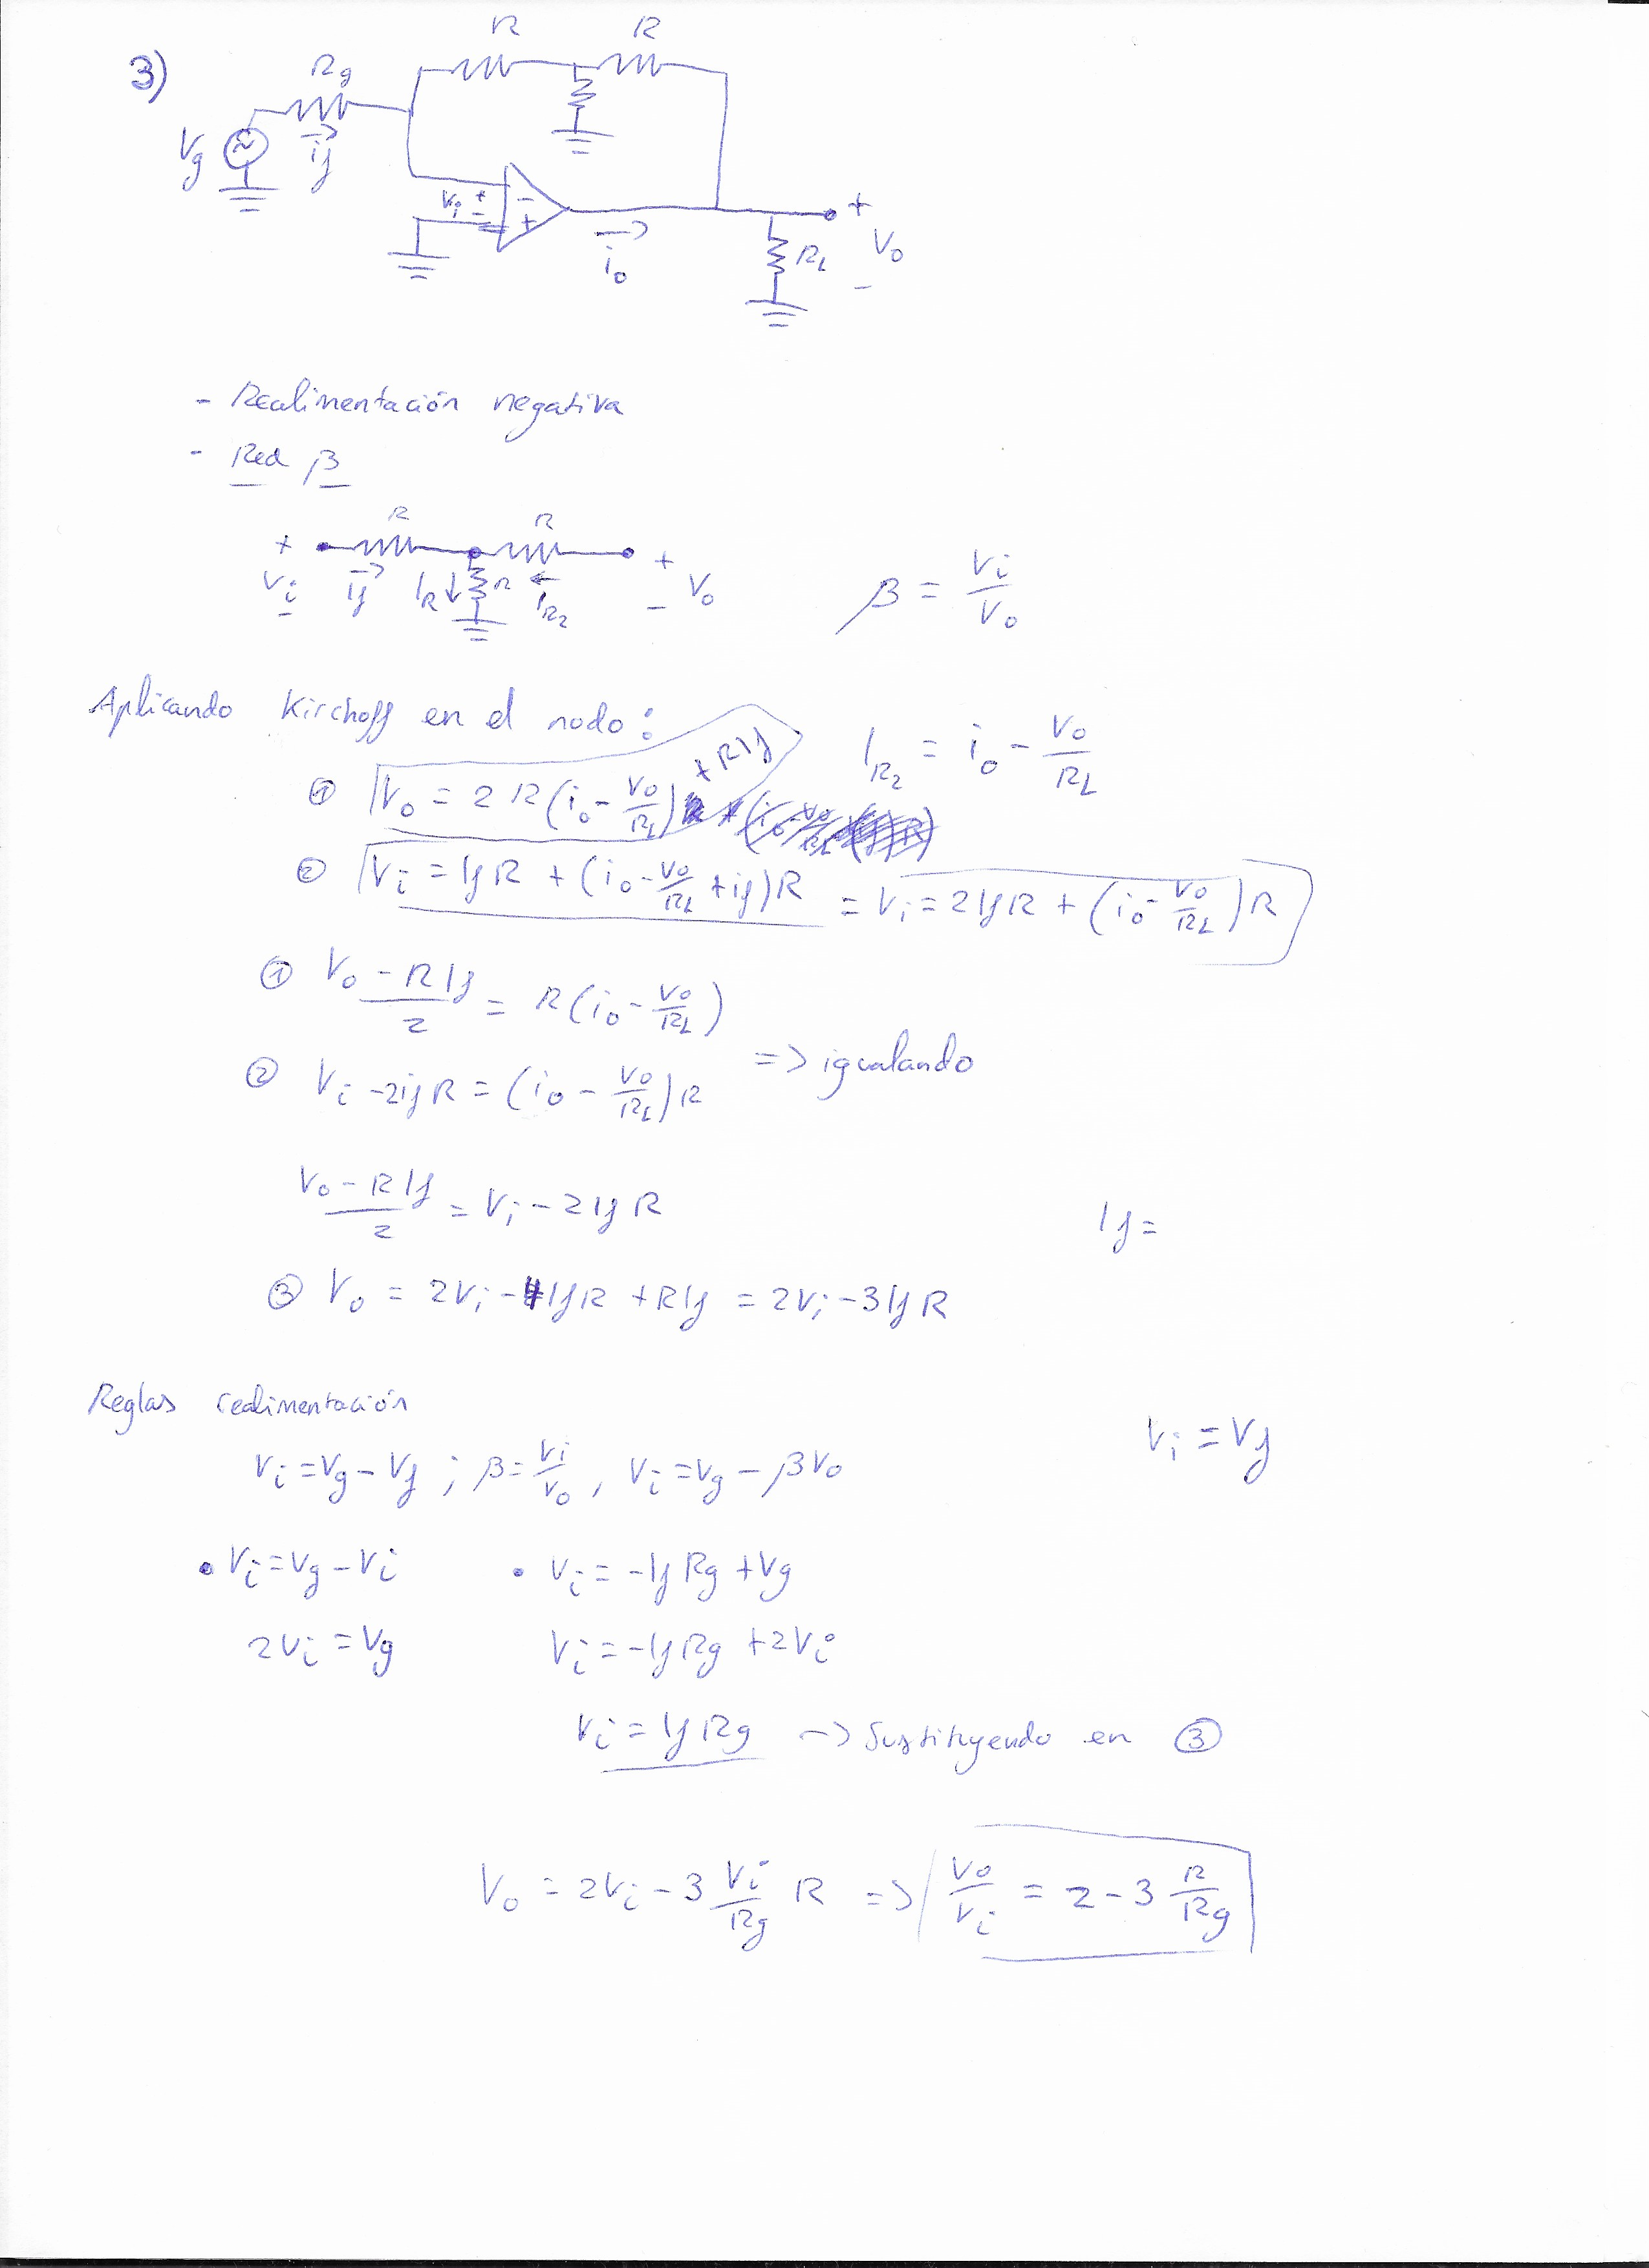 3)
R R
Rg
Vg
if
Vi + -
- +
io
+ Vo -
RL
- Realimentación negativa
- Red β
R R
+ Vi - if IR R IR2 + Vo -
β = Vi/Vo
Aplicando Kirchoff en el nodo:
IR2 = io - Vo/RL
① Vo = 2R(io - Vo/RL) + RIf
② Vi = IfR + (io - Vo/RL + if)R = Vi = 2IfR + (io - Vo/RL)R
① (Vo - RIf)/2 = R(io - Vo/RL)
=> igualando
② Vi - 2ifR = (io - Vo/RL)R
(Vo - RIf)/2 = Vi - 2IfR
If =
③ Vo = 2Vi - 4IfR + RIf = 2Vi - 3IfR
Reglas realimentación
Vi = Vf
Vi = Vg - Vf ; β = Vi/Vo , Vi = Vg - βVo
• Vi = Vg - Vi • Vi = -IfRg + Vg
2Vi = Vg Vi = -IfRg + 2Vi
Vi = IfRg -> Sustituyendo en ③
Vo = 2Vi - 3 Vi/Rg R => Vo/Vi = 2 - 3 R/Rg